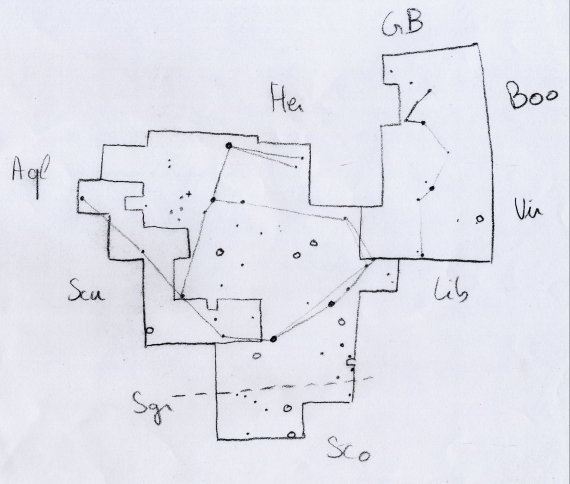 GB
Her
Boo
Aql
Vir
Scu
Lib
Sgr
Sco